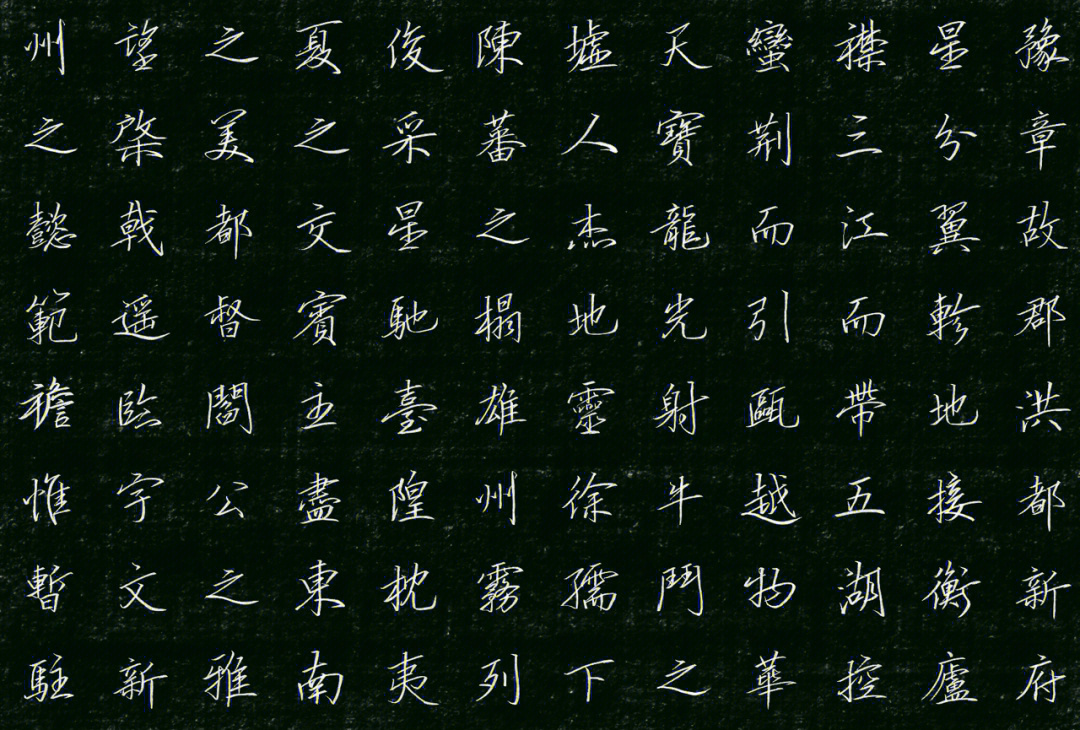 豫章故郡洪都新府
星分翼軫地接衡廬
襟三江而帶五湖控
蠻荆而引甌越物華
天寶龍光射牛鬥之
墟人杰地靈徐孺下
陳蕃之榻雄州霧列
俊采星馳臺隍枕夷
夏之交賓主盡東南
之美都督閻公之雅
望棨戟遥臨宇文新
州之懿範襜惟暫駐